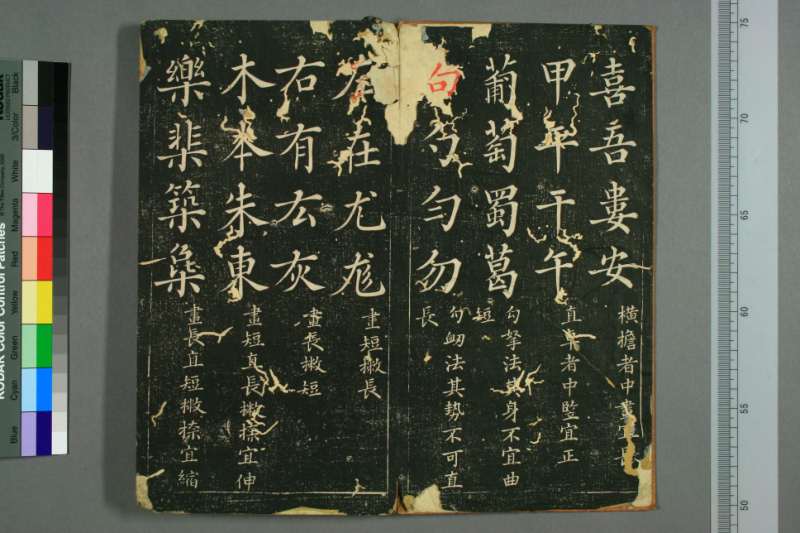 喜吾婁安
橫擔者中畫宜長
甲平干午
直卓者中豎宜正
葡萄蜀葛
勾拏法其身不宜曲
短
句勺勻勿
勾法其勢不可直
長
左在尤尨
畫短撇長
右有厷灰
畫長撇短
木本朱東
畫短直長撇捺宜伸
樂棐築
畫長直短撇捺宜縮
KODAK Color Control Patches
Blue
Cyan
Green
Yellow
Red
Magenta
White
3/Color
Black
75
70
65
60
55
50